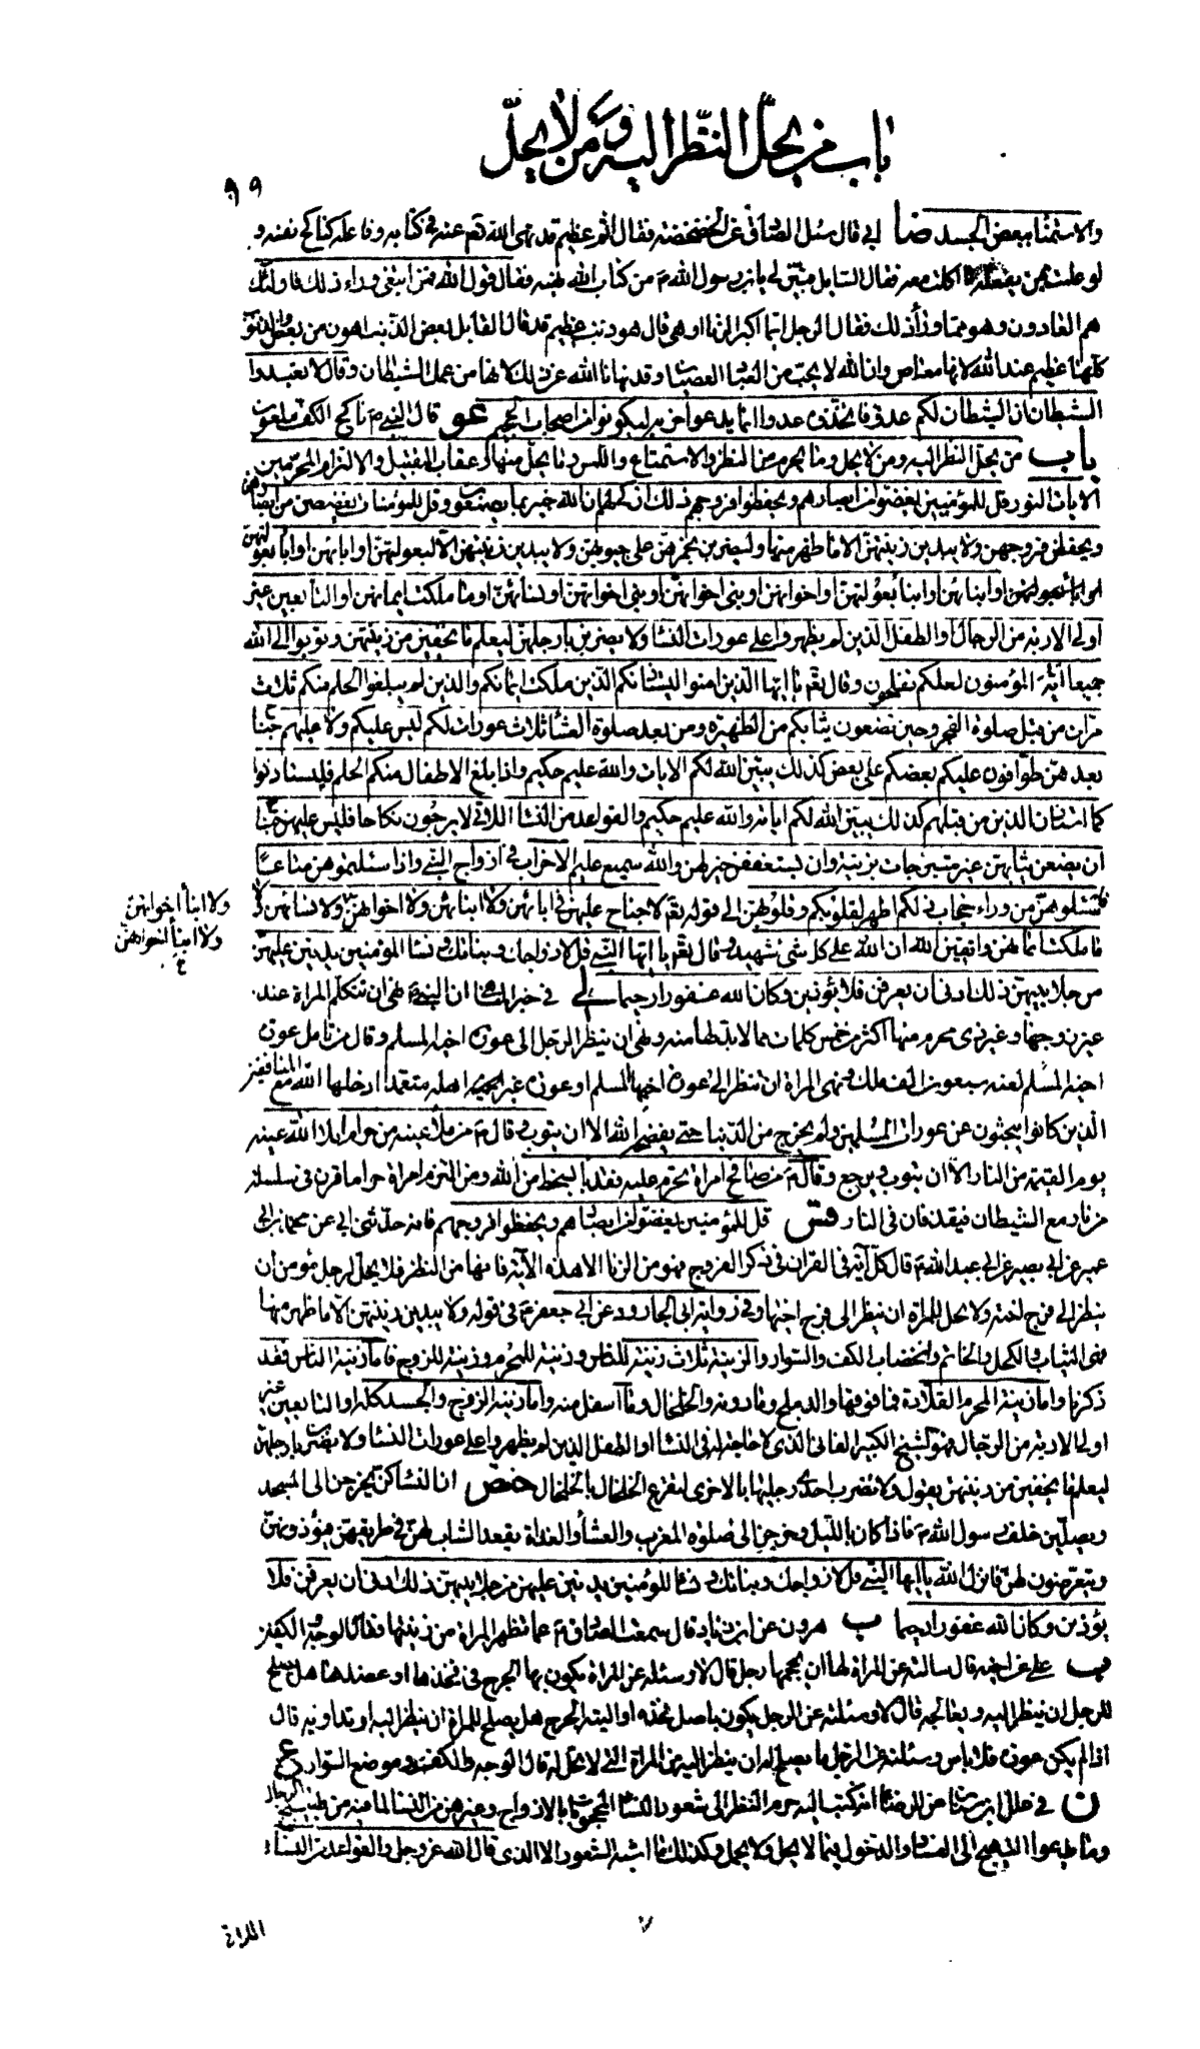 باب من يحلّ النّظر اليه ومن لا يحلّ
٩٩
والاستمناء ببعض الجسد ضا ابي قال سئل الصّادق عن الخضخضة فقال اثم عظيم قد نهى الله تعم عنه في كتابه وفاعله كناكح نفسه و
لو علمت بمن يفعله ما اكلت معه فقال السايل فبيّن لي يابن رسول الله ﷺ من كتاب الله نهيه فقال قول الله فمن ابتغى وراء ذلك فاولئك
هم العادون وهو مما وراء ذلك فقال الرجل ايّما اكبر الزنا او هي قال هو ذنب عظيم قد قال القايل بعض الذنب اهون من بعض والذنوب
كلّها عظيم عند الله لانها معاصي وان الله لا يحب من العباد العصيان وقد نهانا الله عن ذلك لانها من عمل الشيطان وقال لا تعبدوا
الشيطان ان الشيطان لكم عدو فاتخذوه عدوا انما يدعوا حزبه ليكونوا من اصحاب السعير عو قال النبي ﷺ ناكح الكف ملعون
باب من يحلّ النظر اليه ومن لا يحل وما يحرم من النظر والاستمتاع واللمس وما يحلّ منها وعقاب التقبيل والالتزام المحرّمين
الايات النور قل للمؤمنين يغضّوا من ابصارهم ويحفظوا فروجهم ذلك ازكى لهم ان الله خبير بما يصنعون وقل للمؤمنات يغضضن من ابصارهن
ويحفظن فروجهن ولا يبدين زينتهنّ الا ما ظهر منها وليضربن بخمرهنّ على جيوبهنّ ولا يبدين زينتهنّ الا لبعولتهنّ او ابائهن او اباء بعولتهن
او ابنائهنّ او ابناء بعولتهنّ او اخوانهن او بني اخوانهنّ او بني اخواتهنّ او نسائهنّ او ما ملكت ايمانهن او التابعين غير
اولى الاربة من الرجال او الطفل الذين لم يظهروا على عورات النساء ولا يضربن بارجلهنّ ليعلم ما يخفين من زينتهن وتوبوا الى الله
جميعا ايّه المؤمنون لعلكم تفلحون وقال تعم يا ايّها الذين امنوا ليستاذنكم الذين ملكت ايمانكم والذين لم يبلغوا الحلم منكم ثلاث
مرّات من قبل صلوة الفجر وحين تضعون ثيابكم من الظهيرة ومن بعد صلوة العشاء ثلاث عورات لكم ليس عليكم ولا عليهم جناح
بعدهنّ طوّافون عليكم بعضكم على بعض كذلك يبيّن الله لكم الايات والله عليم حكيم واذا بلغ الاطفال منكم الحلم فليستاذنوا
كما استاذن الذين من قبلهم كذلك يبيّن الله لكم اياته والله عليم حكيم والقواعد من النساء اللاتي لا يرجون نكاحا فليس عليهن جناح
ان يضعن ثيابهنّ غير متبرّجات بزينة وان يستعففن خير لهن والله سميع عليم الاحزاب في ازواج النبي واذا سئلتموهن متاعا
فاسئلوهنّ من وراء حجاب ذلكم اطهر لقلوبكم وقلوبهنّ الى قوله تعم لا جناح عليهنّ في ابائهنّ ولا ابنائهنّ ولا اخوانهنّ ولا نسائهنّ ولا
ولا ابناء اخوانهنّ
ولا ابناء اخواتهنّ
ما ملكت ايمانهن واتقين الله ان الله على كل شئ شهيدا وقال تعم يا ايّها النّبي قل لازواجك وبناتك ونساء المؤمنين يدنين عليهنّ
من جلابيبهنّ ذلك ادنى ان يعرفن فلا يؤذين وكان الله غفورا رحيما لي في خبر المناهي ان النبي ﷺ نهى ان تتكلم المراة عند
غير زوجها وغير ذي محرم منها اكثر من خمس كلمات مما لا بد لها منه ونهى ان ينظر الرجل الى عورة اخيه المسلم وقال من تامل عورة
اخيه المسلم لعنه سبعون الف ملك ونهى المراة ان تنظر الى عورة المراة وقال من نظر الى عورة اخيه المسلم او عورة غير اهله متعمدا ادخله الله مع المنافقين
الّذين كانوا يبحثون عن عورات المسلمين ولم يخرج من الدنيا حتى يفضحه الله الا ان يتوب وقال ﷺ من ملأ عينه من حرام ملأ الله عينه
يوم القيمة من النار الا ان يتوب ويرجع وقال ﷺ من صافح امراة تحرم عليه فقد باء بسخط من الله ومن التزم امراة حراما قرن في سلسلة
من نار مع الشيطان فيقذفان في النار فس قل للمؤمنين يغضّوا من ابصارهم ويحفظوا فروجهم فانه حدّثني ابي عن محمد بن ابي
عمير عن ابي بصير عن ابي عبد الله ﷺ قال كل اية في القران في ذكر الفروج فهو من الزنا الا هذه الاية فانها من النظر فلا يحل لرجل مؤمن ان
ينظر الى فرج اخيه ولا يحل للمراة ان ينظر الى فرج اختها وفي رواية ابي الجارود عن ابي جعفر ع في قوله ولا يبدين زينتهن الا ما ظهر منها
فهي الثياب والكحل والخاتم وخضاب الكف والسوار والزينة ثلاث زينة للناس وزينة للمحرم وزينة للزوج فاما زينة الناس فقد
ذكرنا واما زينة المحرم فموضع القلادة فما فوقها والدملج وما دونه والخلخال وما اسفل منه واما زينة الزوج فالجسد كله او التابعين غير
اولى الاربة من الرجال فهو الشيخ الكبير الفاني الذي لا حاجة له في النساء او الطفل الذين لم يظهروا على عورات النساء ولا يضربن بارجلهن
ليعلم ما يخفين من زينتهن يقول ولا تضرب احدى رجليها بالاخرى ليقرع الخلخال بالخلخال فس ان النساء كن يخرجن الى المسجد
ويصلين خلف رسول الله ﷺ فاذا كان بالليل وخرجن الى صلوة المغرب والعشاء والغداة يقعد الشاب لهنّ في طريقهنّ فيؤذونهنّ
ويتعرضون لهن فانزل الله يا ايها النبي قل لازواجك وبناتك ونساء المؤمنين يدنين عليهن من جلابيبهن ذلك ادنى ان يعرفن فلا
يؤذين وكان الله غفورا رحيما ب هرون عن ابن زياد قال سمعت الصادق ﷺ عما تظهر المراة من زينتها فقال الوجه والكفين
ب علي عن اخيه قال سالته عن المراة لها ان يحجمها رجل قال لا وسئلته عن المراة يكون بها الجرح في فخذها او عضدها هل يصلح
للرجل ان ينظر اليه ويعالجه قال لا وسئلته عن الرجل يكون باصل فخذه او اليته الجرح هل يصلح للمراة ان ينظر اليه او تداويه قال
اذا لم يكن عورة فلا باس وسئلته عن الرجل ما يصلح له ان ينظر اليه من المراة التي لا تحل له قال الوجه والكف وموضع السوار ع
ن في علل ابن سنان عن الرضا انه كتب اليه حرم النظر الى شعور النساء المحجوبات بالازواج وغيرهن من النساء لما فيه من تهييج الرجال
وما يدعوا التهييج الى الفساد والدخول فيما لا يحل ولا يجمل وكذلك ما اشبه الشعور الا الذي قال الله عز وجل والقواعد من النساء
اللاتي